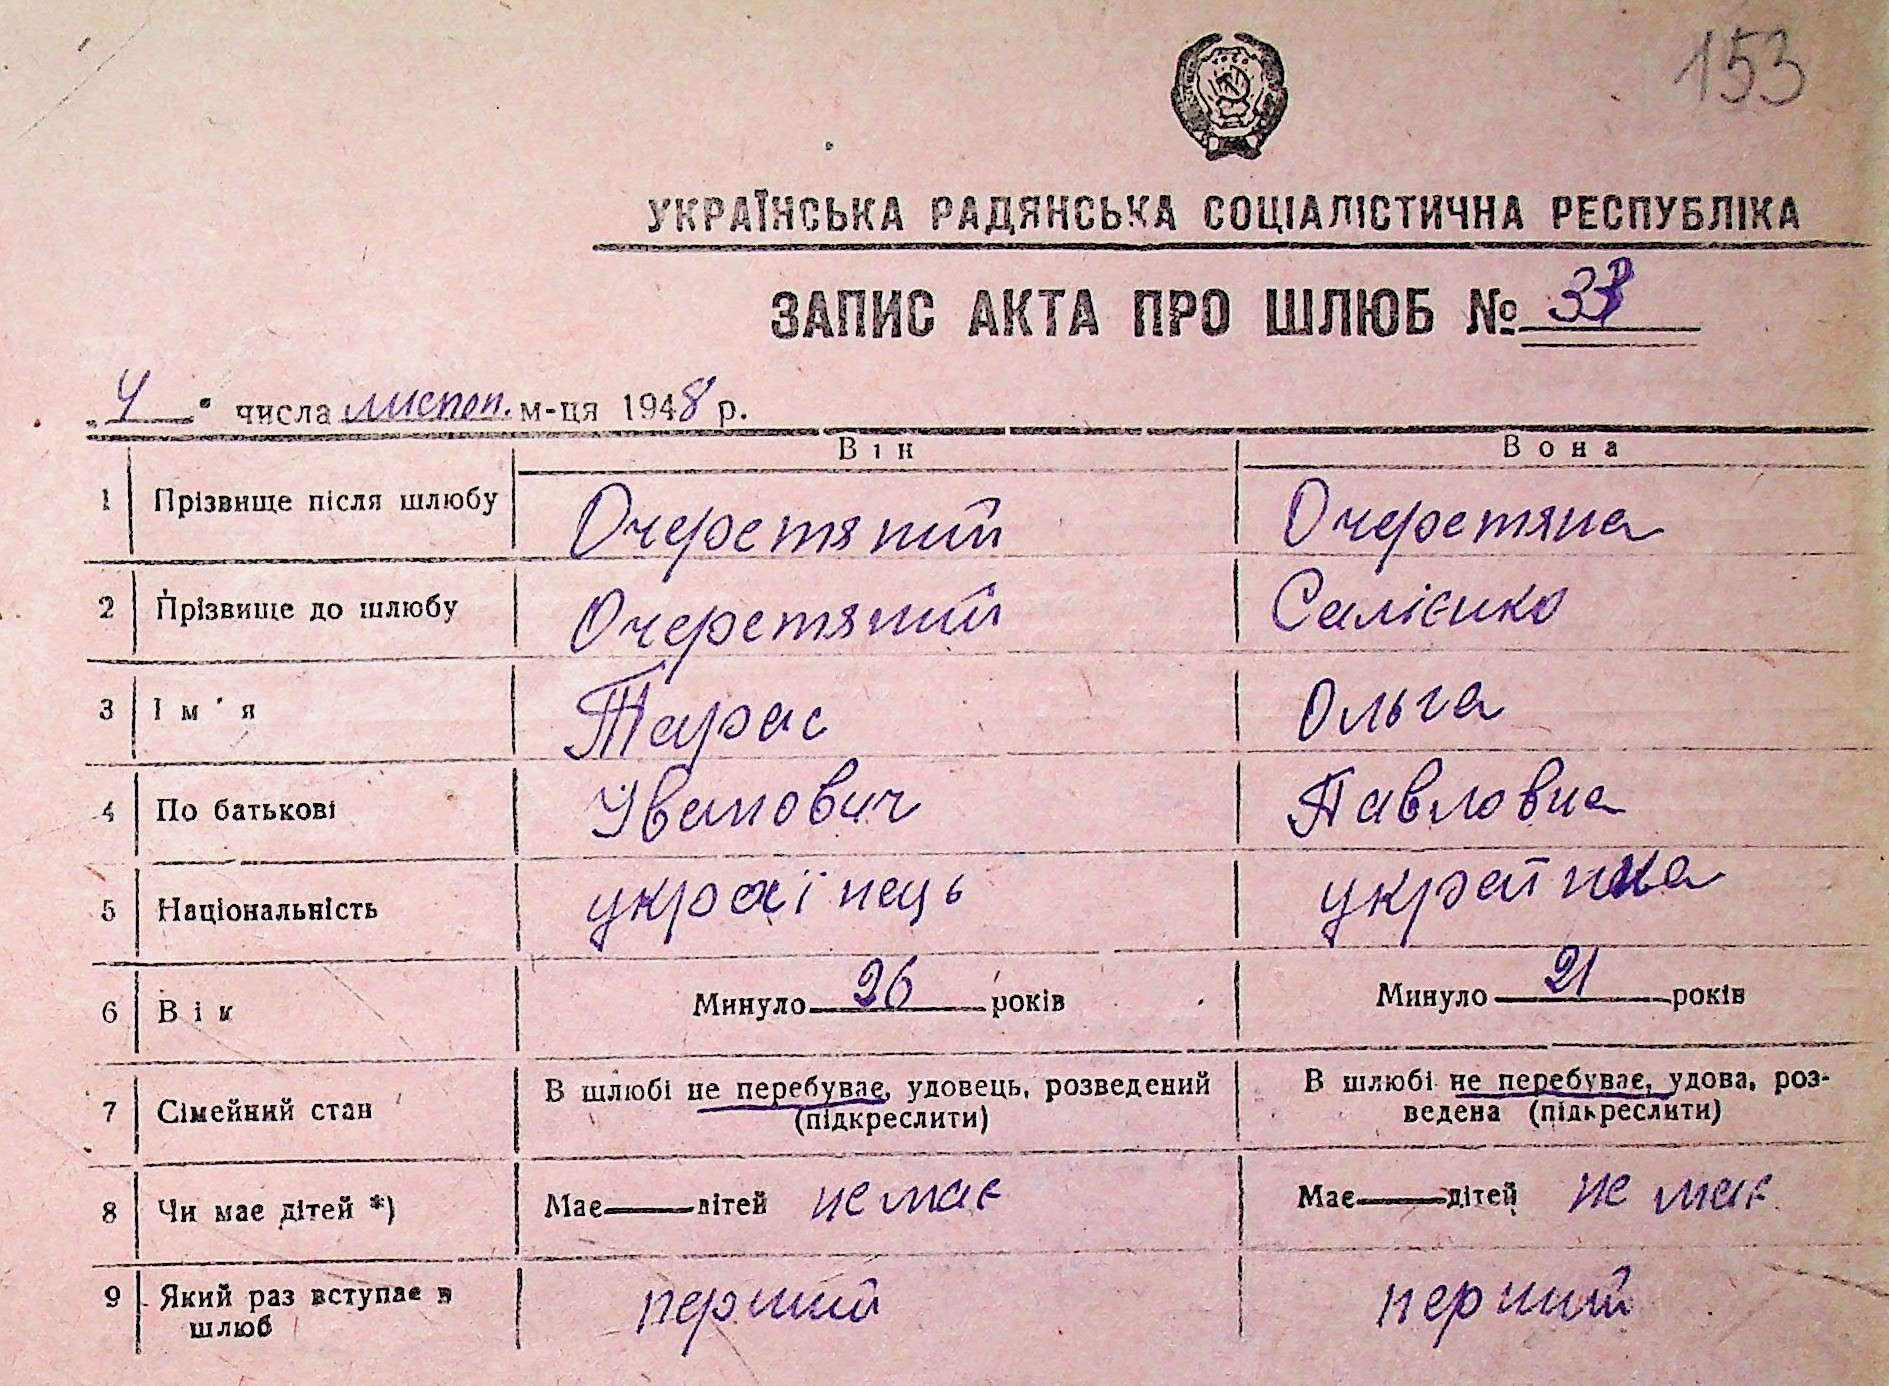 153
УКРАЇНСЬКА РАДЯНСЬКА СОЦІАЛІСТИЧНА РЕСПУБЛІКА
ЗАПИС АКТА ПРО ШЛЮБ №
„4" числа листоп. м-ця 1948 р.
Він Вона
1 Прізвище після шлюбу Очеретяний Очеретяна
2 Прізвище до шлюбу Очеретяний Салієнко
3 Ім'я Тарас Ольга
4 По батькові Іванович Павловна
5 Національність українець українка
6 Вік Минуло 26 років Минуло 21 років
7 Сімейний стан В шлюбі не перебуває, удовець, розведений (підкреслити) В шлюбі не перебуває, удова, розведена (підкреслити)
8 Чи має дітей *) Має — дітей не має Має — дітей не має
9 Який раз вступає в шлюб перший перший